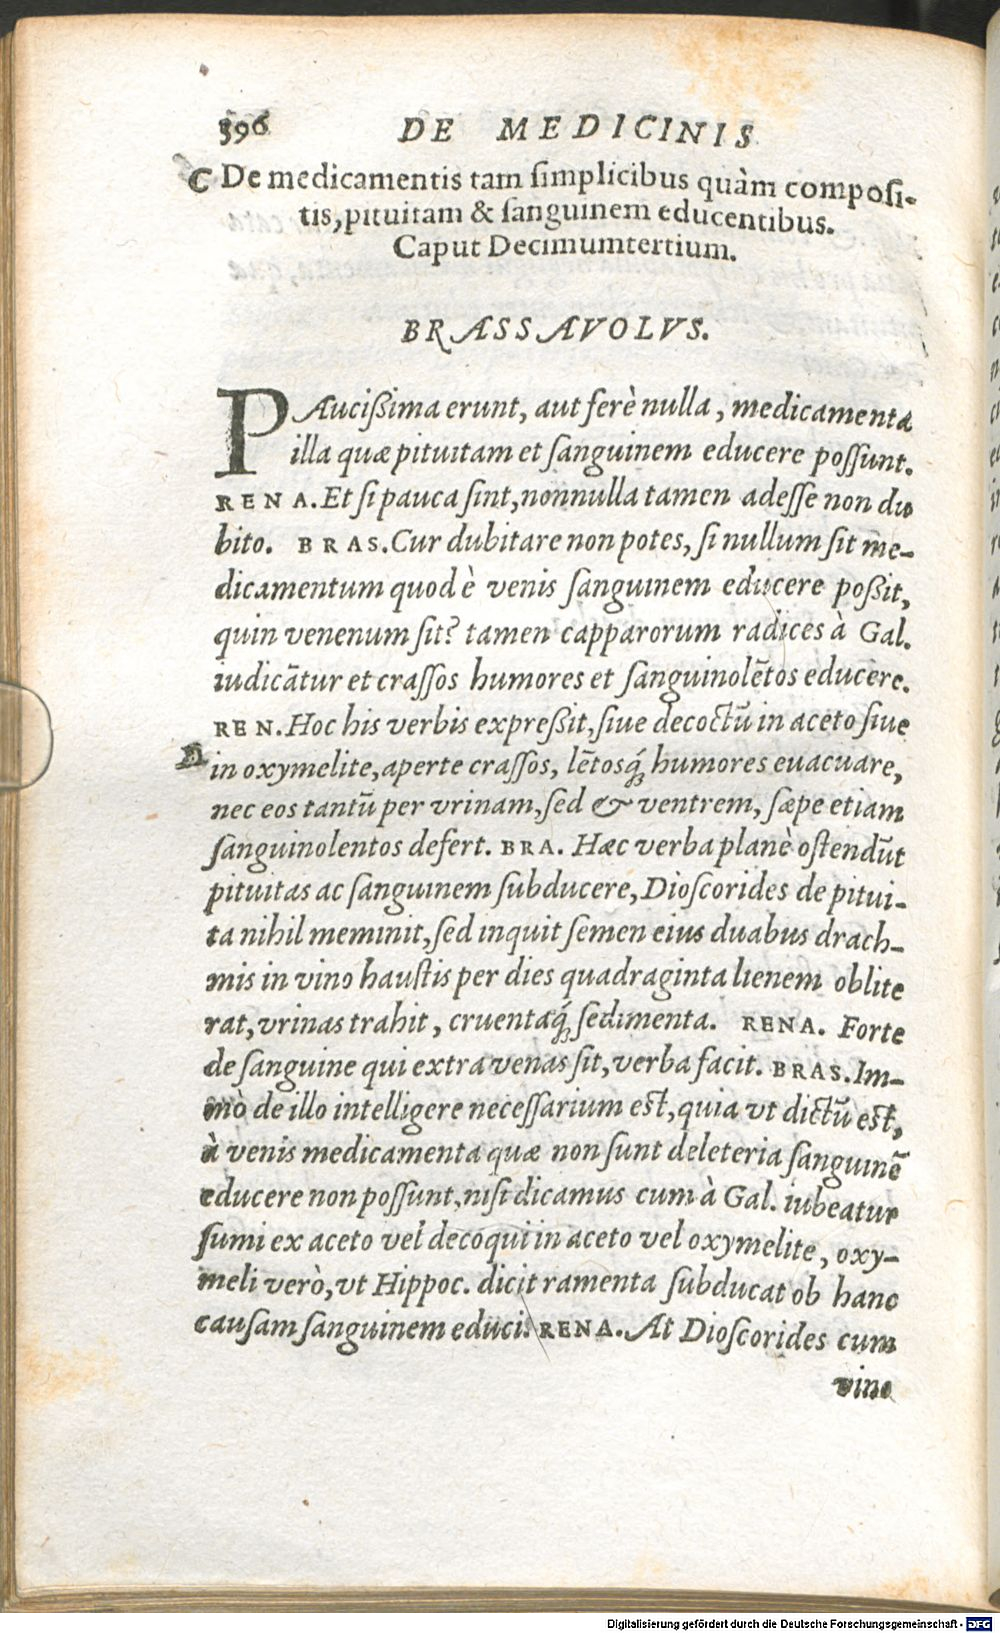 396 DE MEDICINIS
C De medicamentis tam simplicibus quàm composi-
tis, pituitam & sanguinem educentibus.
Caput Decimumtertium.
BRASSAVOLVS.
PAucißima erunt, aut ferè nulla, medicamenta
illa quæ pituitam et sanguinem educere possunt.
RENA. Et si pauca sint, nonnulla tamen adesse non du
bito. BRAS. Cur dubitare non potes, si nullum sit me-
dicamentum quod è venis sanguinem educere poßit,
quin venenum sit? tamen capparorum radices à Gal.
iudicātur et crassos humores et sanguinolētos educere.
REN. Hoc his verbis expreßit, siue decoctū in aceto siue
D in oxymelite, aperte crassos, lētosq́; humores euacuare,
nec eos tantū per vrinam, sed & ventrem, sæpe etiam
sanguinolentos defert. BRA. Hæc verba planè ostendūt
pituitas ac sanguinem subducere, Dioscorides de pitui-
ta nihil meminit, sed inquit semen eius duabus drach-
mis in vino haustis per dies quadraginta lienem oblite
rat, vrinas trahit, cruentaq́; sedimenta. RENA. Forte
de sanguine qui extra venas sit, verba facit. BRAS. Im-
mò de illo intelligere necessarium est, quia vt dictū est,
à venis medicamenta quæ non sunt deleteria sanguinē
educere non possunt, nisi dicamus cum à Gal. iubeatur
sumi ex aceto vel decoqui in aceto vel oxymelite, oxy-
meli verò, vt Hippoc. dicit ramenta subducat ob hanc
causam sanguinem educi. RENA. At Dioscorides cum
vino
Digitalisierung gefördert durch die Deutsche Forschungsgemeinschaft - DFG